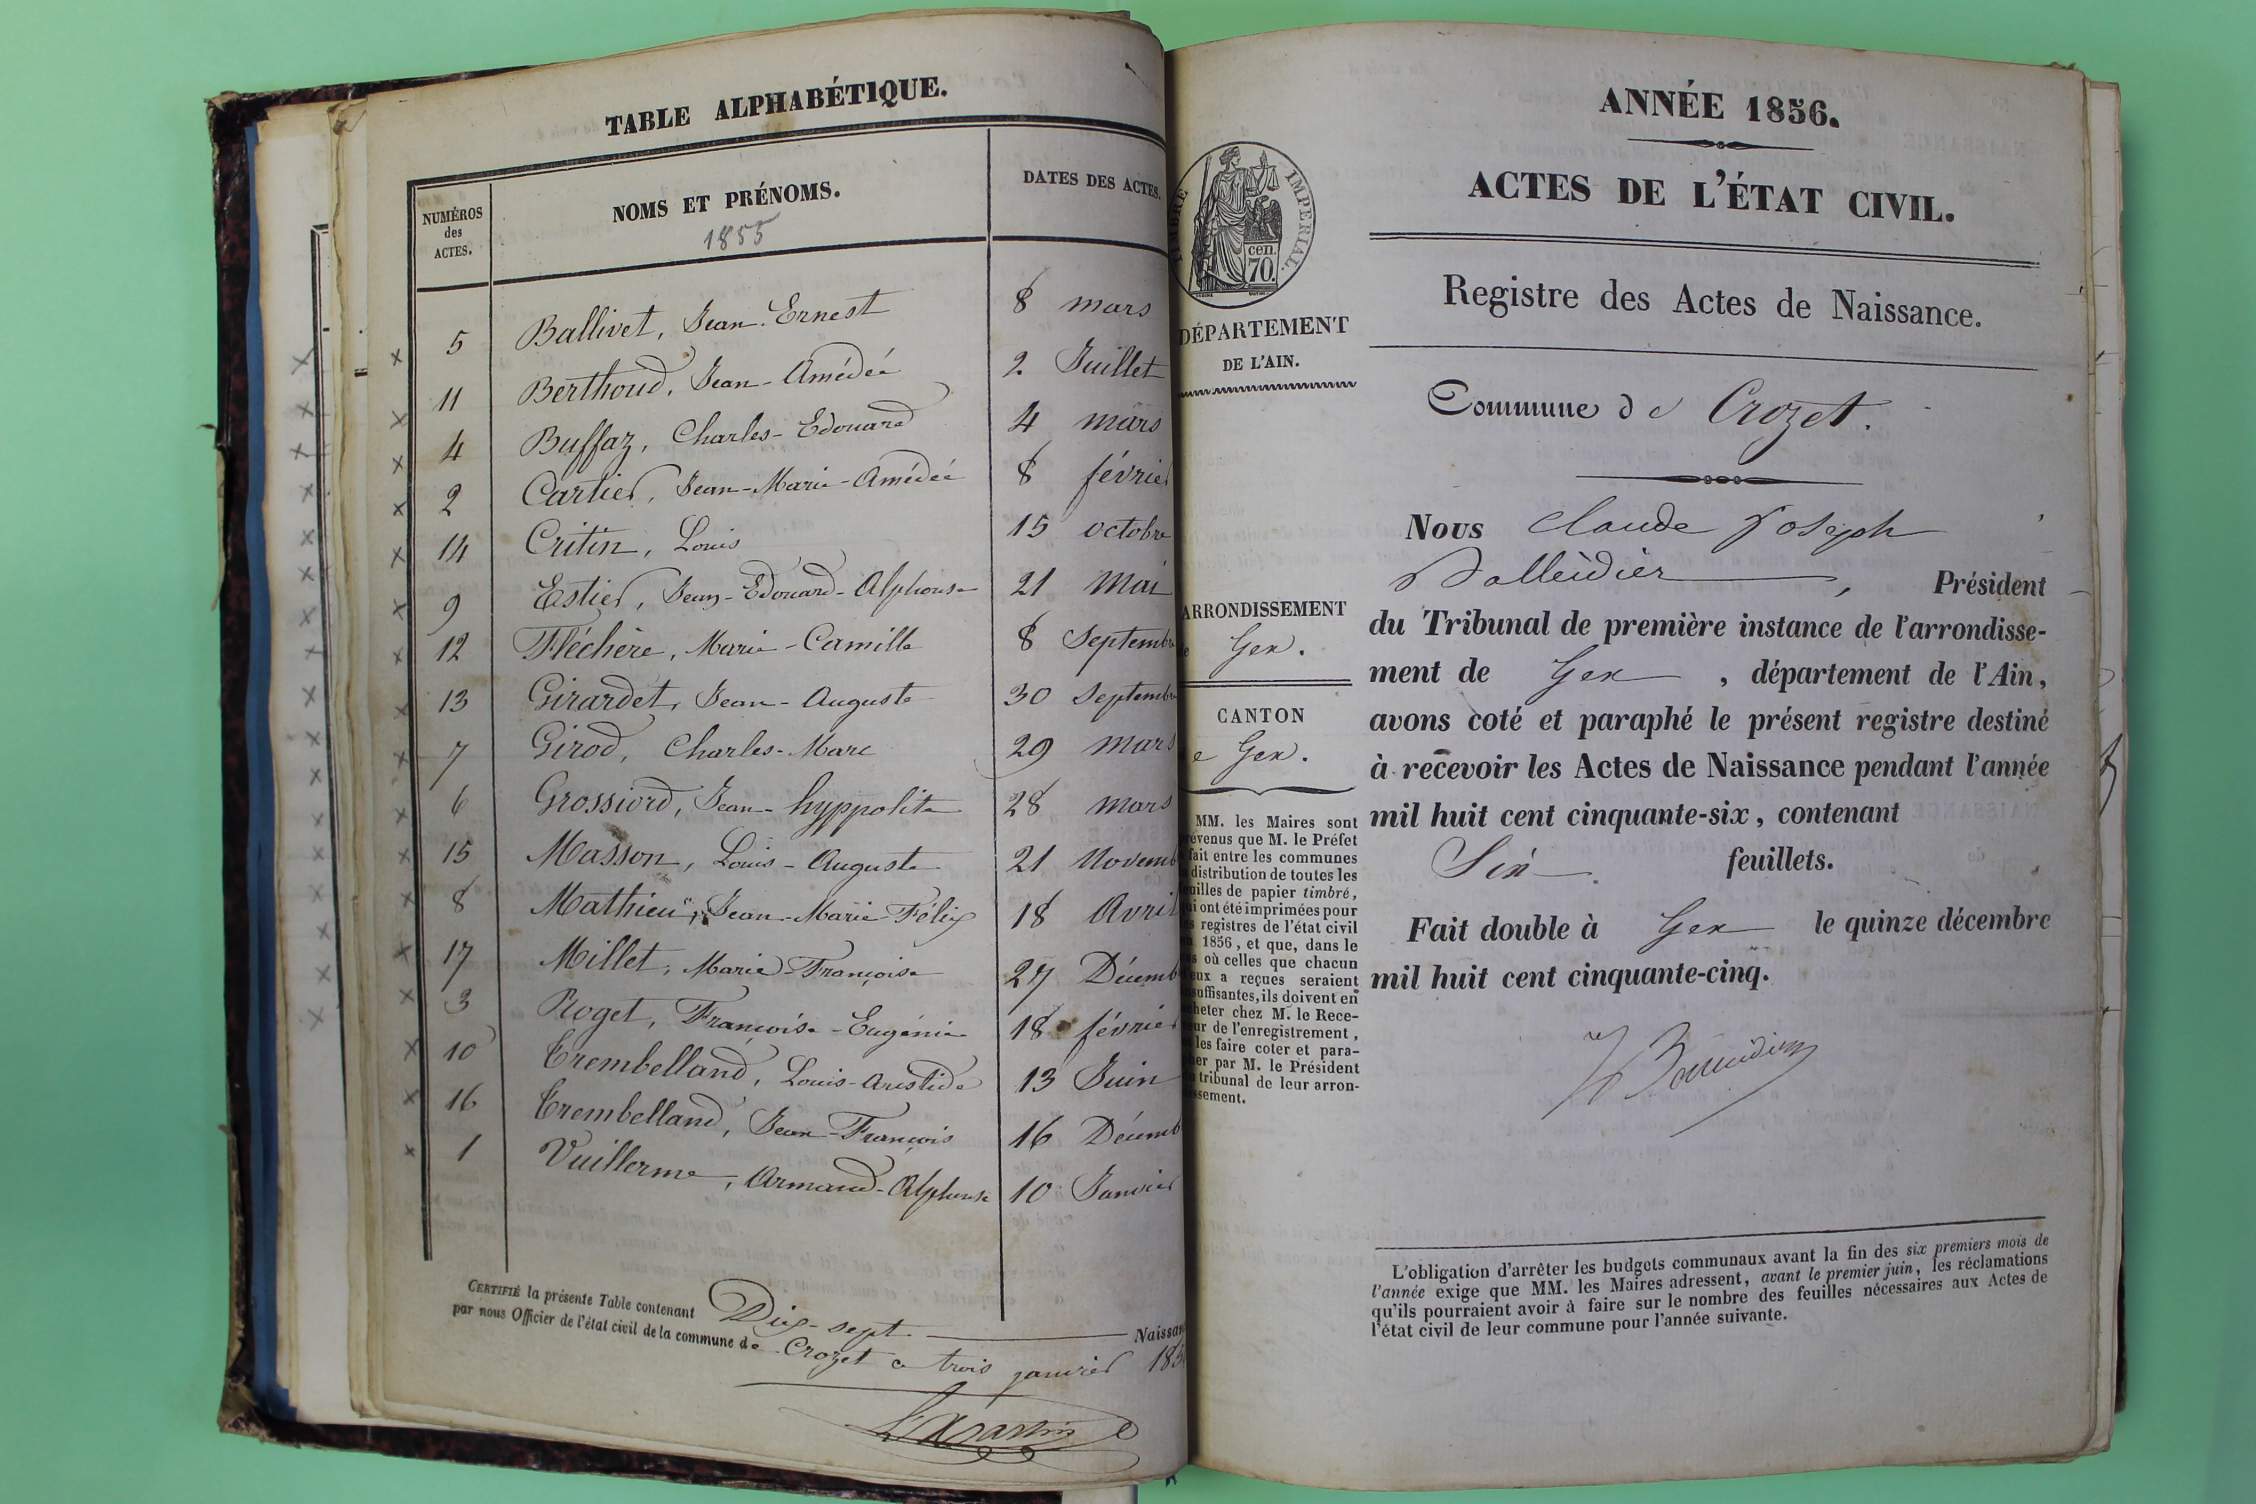 TABLE ALPHABÉTIQUE.
NUMÉROS des ACTES.
NOMS ET PRÉNOMS.
1855
DATES DES ACTES.
5 Ballivet, Jean-Ernest 8 mars
11 Berthoud, Jean-Amédéé 2 Juillet
4 Buffaz, Charles-Edouard 4 mars
2 Cartier, Jean-Marie-Amédéé 8 février
14 Critin, Louis 15 octobre
9 Estier, Jean-Edouard-Alphonse 21 Mai
12 Fléchère, Marie-Camille 8 Septembre
13 Girardet, Jean-Auguste 30 Septembre
7 Girod, Charles-Marc 29 mars
6 Grossiord, Jean-hyppolite 28 mars
15 Masson, Louis-Auguste 21 Novemb
8 Mathieu, Jean-Marie-Félix 18 Avril
17 Millet, Marie-Françoise 27 Décemb
3 Roget, Françoise-Eugénie 18 février
10 Trembelland, Louis-Aristide 13 Juin
16 Trembelland, Jean-François 16 Décemb
1 Vuillerme, Armand-Alphonse 10 Janvier
CERTIFIÉ la présente Table contenant Dix-sept Naissan
par nous Officier de l'état civil de la commune de Crozet ce trois janvier 185
TIMBRE IMPÉRIAL.
cen.
70.
DÉPARTEMENT
DE L'AIN.
ARRONDISSEMENT
Gex.
CANTON
e Gex.
MM. les Maires sont
évenus que M. le Préfet
fait entre les communes
distribution de toutes les
uilles de papier timbré,
ui ont été imprimées pour
s registres de l'état civil
1856, et que, dans le
s où celles que chacun
eux a reçues seraient
suffisantes, ils doivent en
heter chez M. le Rece-
ur de l'enregistrement,
les faire coter et para-
her par M. le Président
tribunal de leur arron-
ssement.
ANNÉE 1856.
ACTES DE L'ÉTAT CIVIL.
Registre des Actes de Naissance.
Commune de Crozet.
Nous Claude Joseph
, Président
du Tribunal de première instance de l'arrondisse-
ment de Gex, département de l'Ain,
avons coté et paraphé le présent registre destiné
à recevoir les Actes de Naissance pendant l'année
mil huit cent cinquante-six, contenant
Six feuillets.
Fait double à Gex le quinze décembre
mil huit cent cinquante-cinq.
L'obligation d'arrêter les budgets communaux avant la fin des six premiers mois de
l'année exige que MM. les Maires adressent, avant le premier juin, les réclamations
qu'ils pourraient avoir à faire sur le nombre des feuilles nécessaires aux Actes de
l'état civil de leur commune pour l'année suivante.